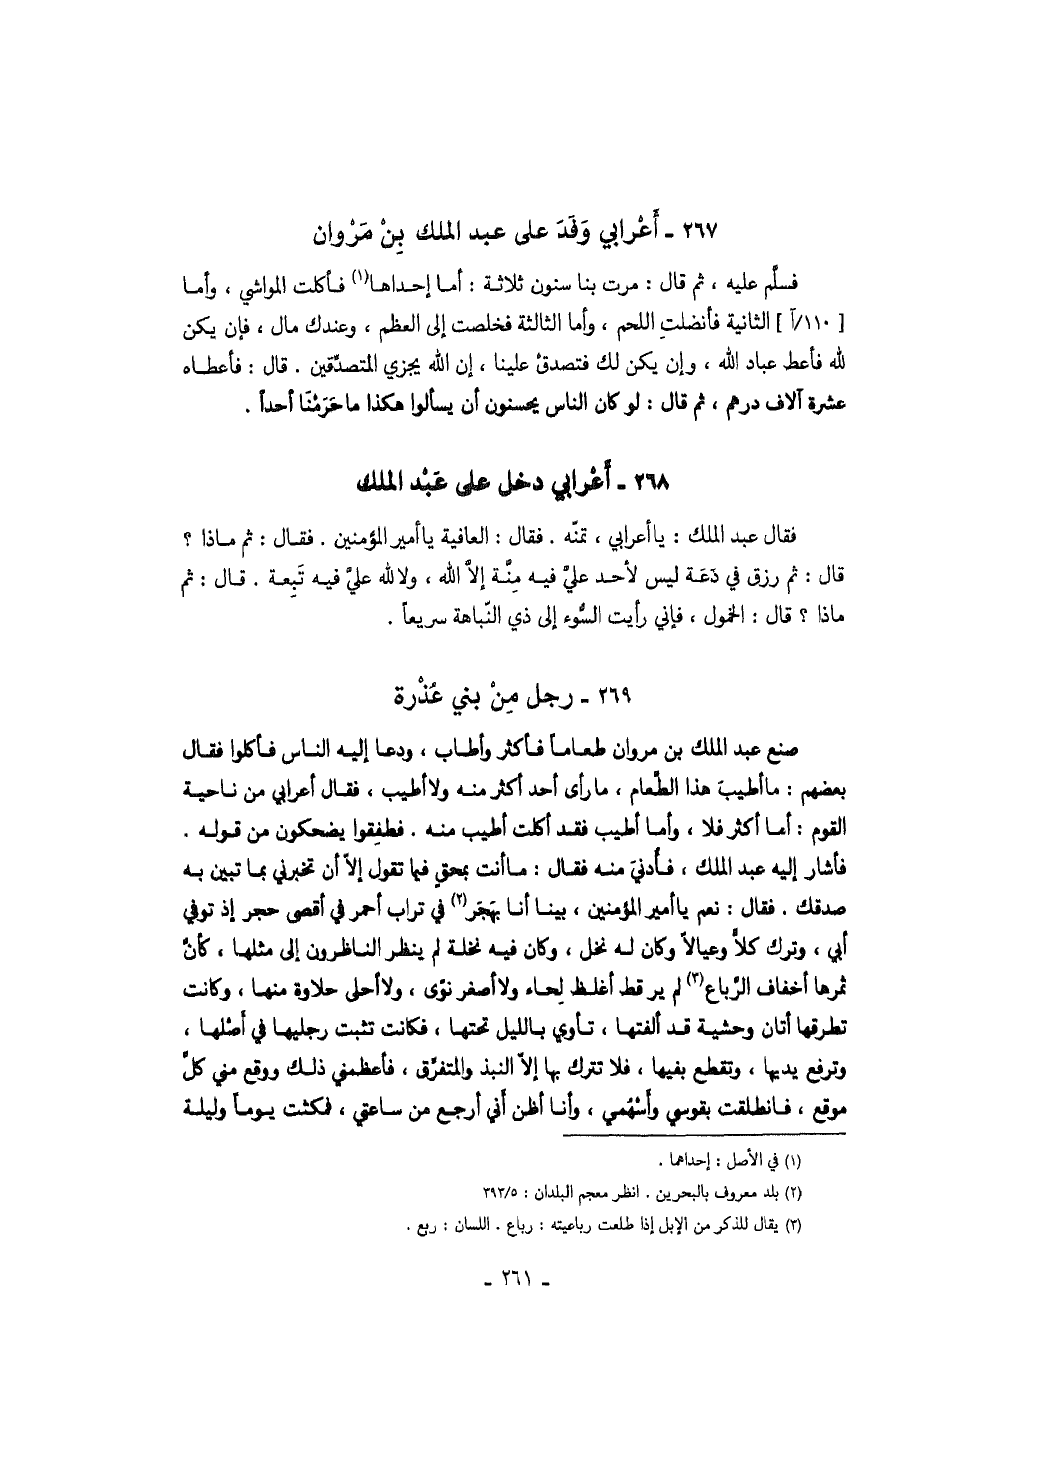 ٢٦٧ ـ أَعْرابي وَفَدَ على عبد الملك بِنْ مَرْوان
فسلَّم عليه ، ثم قال : مرت بنا سنون ثلاثة : أما إحداها(١) فأكلت المواشي ، وأما
[ ١١٠/آ ] الثانية فأنضلتِ اللحم ، وأما الثالثة فخلصت إلى العظم ، وعندك مال ، فإن يكن
لله فأعط عباد الله ، وإن يكن لك فتصدقْ علينا ، إن الله يجزي المتصدِّقين . قال : فأعطاه
عشرة آلاف درهم ، ثم قال : لو كان الناس يحسنون أن يسألوا هكذا ما حَرَمْنَا أحداً .
٢٦٨ ـ أَعْرابي دخل على عَبْد الملك
فقال عبد الملك : ياأعرابي ، تمنّه . فقال : العافية ياأمير المؤمنين . فقال : ثم ماذا ؟
قال : ثم رزق في دَعَة ليس لأحد عليَّ فيه مِنَّة إلاَّ الله ، ولالله عليَّ فيه تَبِعة . قال : ثم
ماذا ؟ قال : الخمول ، فإني رأيت السُّوء إلى ذي النّباهة سريعاً .
٢٦٩ ـ رجل مِنْ بني عُذْرة
صنع عبد الملك بن مروان طعاماً فأكثر وأطاب ، ودعا إليه الناس فأكلوا فقال
بعضهم : ماأطيبَ هذا الطَّعام ، مارأى أحد أكثر منه ولاأطيب ، فقال أعرابي من ناحية
القوم : أما أكثر فلا ، وأما أطيب فقد أكلت أطيب منه . فطفِقوا يضحكون من قوله .
فأشار إليه عبد الملك ، فأُدنيَ منه فقال : ماأنت بمحقٍ فيما تقول إلاّ أن تخبرني بما تبين به
صدقك . فقال : نعم ياأمير المؤمنين ، بينا أنا بهَجَر(٢) في تراب أحمر في أقصى حجر إذ توفي
أبي ، وترك كلاًّ وعيالاً وكان له نخل ، وكان فيه نخلة لم ينظر الناظرون إلى مثلها ، كأنّ
ثمرها أخفاف الرِّباع(٣) لم ير قط أغلظ لِحاء ولاأصغر نوًى ، ولاأحلى حلاوة منها ، وكانت
تطرقها أتان وحشية قد ألفتها ، تأوي بالليل تحتها ، فكانت تثبت رجليها في أَصْلها ،
وترفع يديها ، وتقطع بفيها ، فلا تترك بها إلاّ النبذ والمتفرِّق ، فأعظمني ذلك ووقع مني كلَّ
موقع ، فانطلقت بقوسي وأَسْهُمي ، وأنا أظن أَني أرجع من ساعتي ، فمكثت يوماً وليلة
(١) في الأصل : إحداهما .
(٢) بلد معروف بالبحرين . انظر معجم البلدان : ٣٩٣/٥
(٣) يقال للذكر من الإبل إذا طلعت رباعيته : رباع . اللسان : ربع .
ـ ٢٦١ ـ